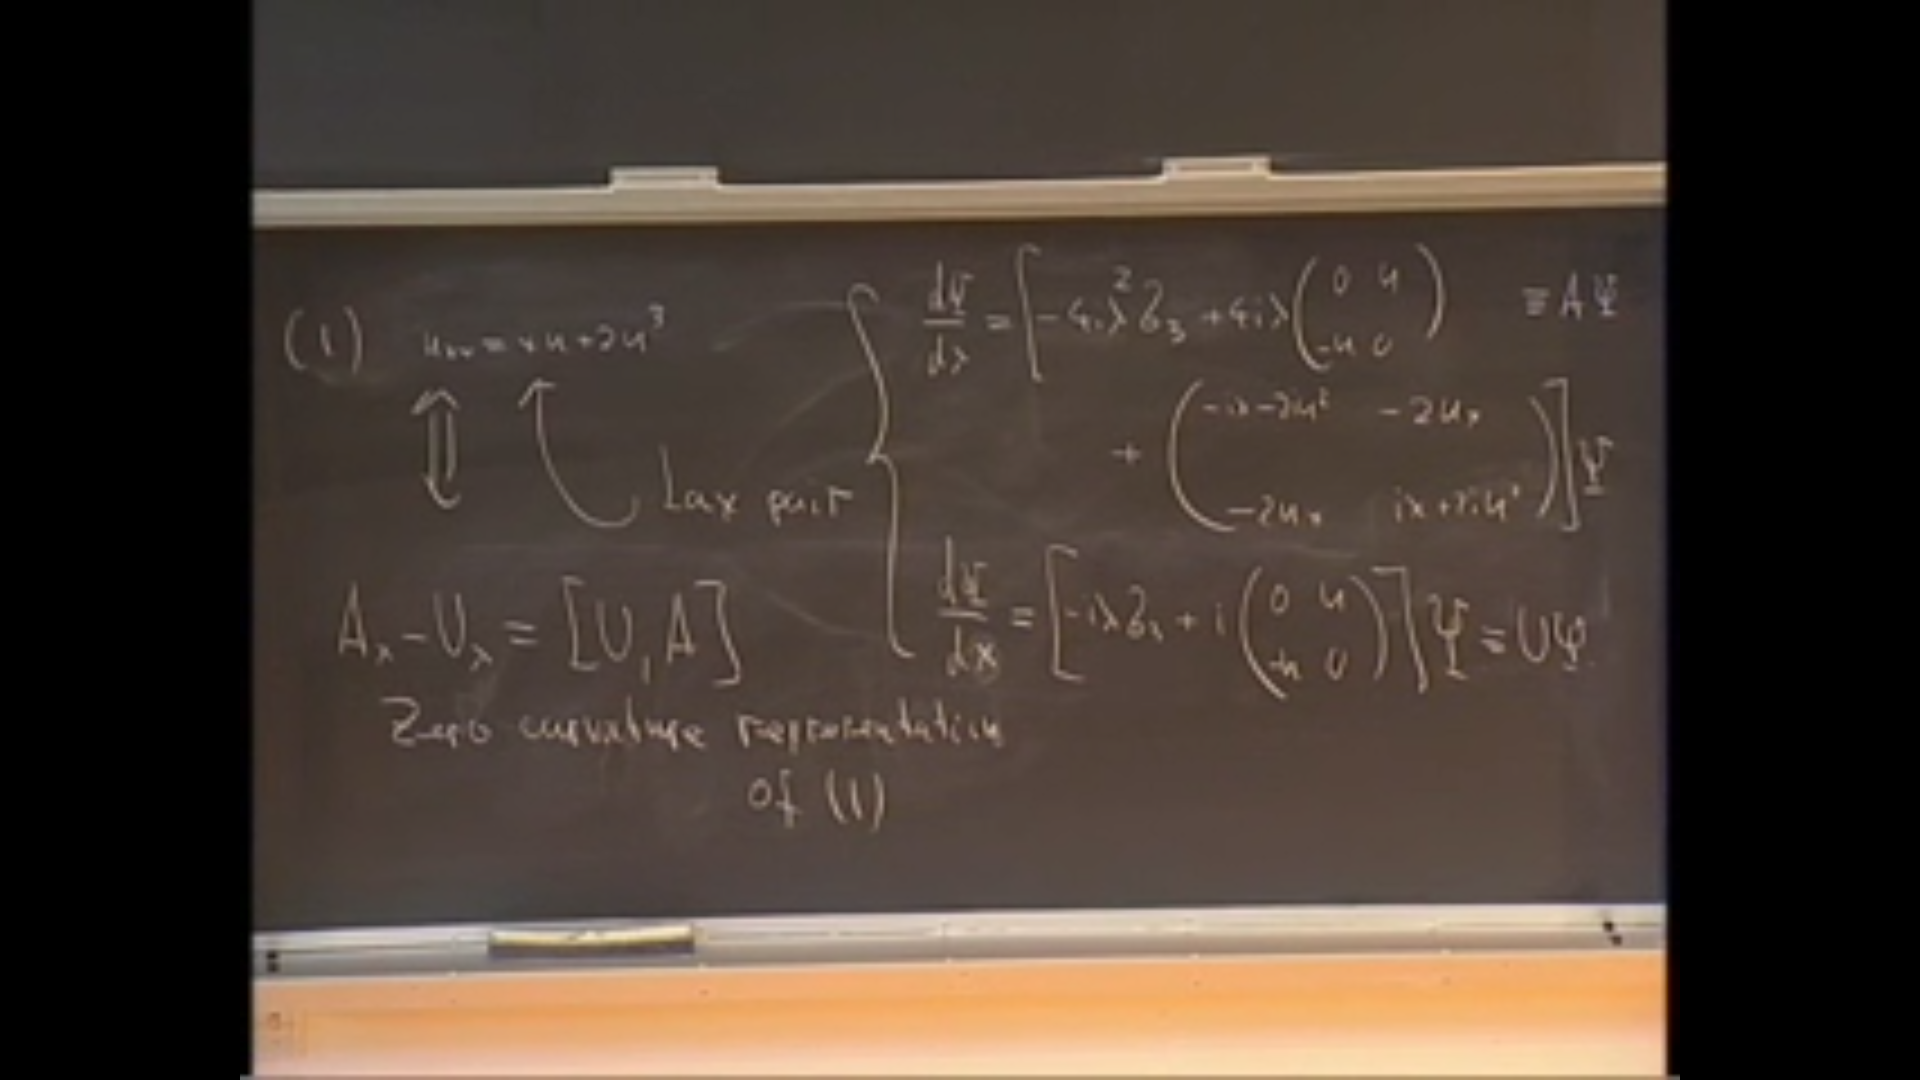 (1) u_{xx} = xu + 2u^3
Lax pair
dΨ/dλ = [ -4iλ^2 σ_3 + 4iλ ( 0 u ; -u 0 ) ≡ AΨ
+ ( -ix-2iu^2 -2u_x ; -2u_x ix+2iu^2 ) ] Ψ
dΨ/dx = [ -iλσ_3 + i ( 0 u ; -u 0 ) ] Ψ = UΨ.
A_x - U_λ = [U, A]
Zero curvature representation
of (1)